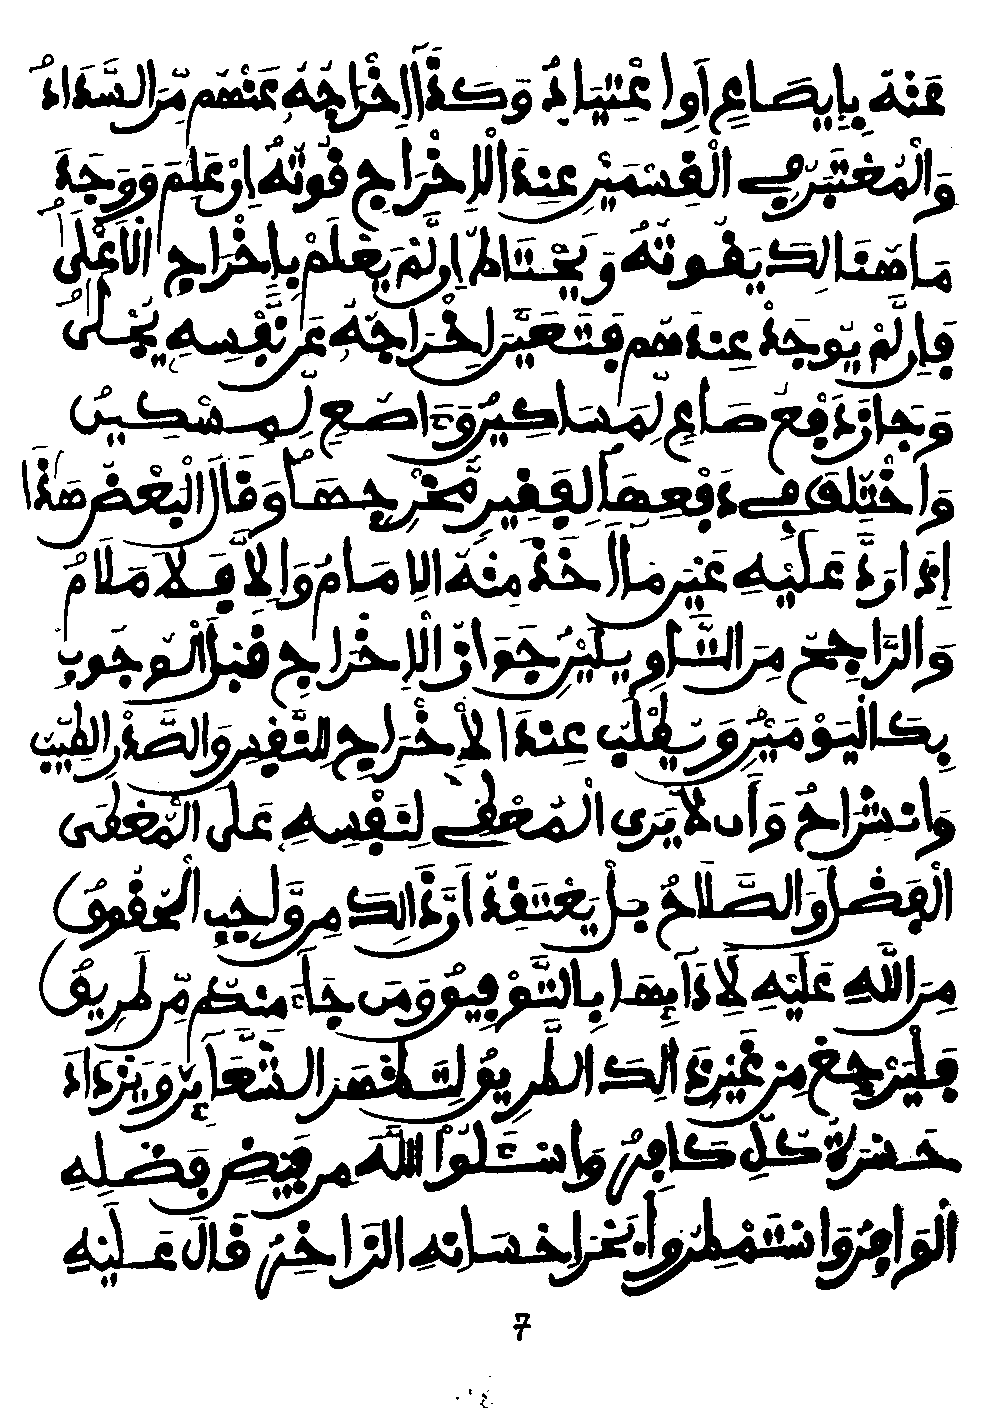 عَنْهُ بِإِيصَاءٍ أَوِ اعْتِيَادٍ وَكَذَا إِخْرَاجُهُ عَنْهُم مِّنَ السَّدَادُ
وَالْمُعْتَبَرُ فِي الْقِسْمَيْنِ عِنْدَ الْإِخْرَاجِ قُوتُهُ إِنْ عَلِمَ وَوَجَدَ
مَا هُنَالِكَ يَقُوتُهُ وَيَحْتَاطُ إِن لَّمْ يَعْلَمْ بِإِخْرَاجِ الْأَعْلَى
فَإِن لَّمْ يُوجَدْ عِنْدَهُم فَتَعَيَّنَ إِخْرَاجُهُ عَن نَّفْسِهِ
وَجَازَ دَفْعُ صَاعٍ لِّمَسَاكِينَ وَءَاصُعٍ لِّمِسْكِينٍ
وَاخْتُلِفَ فِي دَفْعِهَا لِفَقِيرٍ مُّخْرِجِهَا وَقَالَ الْبَعْضُ هَذَا
إِذَا رَدَّ عَلَيْهِ غَيْرَ مَا أَخَذَ مِنْهُ الْإِمَامُ وَإِلَّا فَلَا مَلَامُ
وَالرَّاجِحُ مِنَ التَّأْوِيلَيْنِ جَوَازُ الْإِخْرَاجِ قَبْلَ الْوُجُوبِ
بِكَالْيَوْمَيْنِ وَيُطْلَبُ عِنْدَ الْإِخْرَاجِ لِلنَّفْسِ وَالصَّدْرِ الطِّيبُ
وَانْشِرَاحٌ وَأَن لَّا يَرَى الْمُعْطِي لِنَفْسِهِ عَلَى الْمُعْطَى
الْفَضْلَ وَالصَّلَاحُ بَلْ يَعْتَقِدُ أَنَّ ذَالِكَ مِن وَّاجِبِ الْحُقُوقِ
مِنَ اللَّهِ عَلَيْهِ لِأَدَائِهَا بِالتَّوْفِيقِ وَمَن جَاءَ مِنْكُم مِّن طَرِيقٍ
فَلْيَرْجِعْ مِنْ غَيْرِ ذَالِكَ الطَّرِيقِ لِتَظْهَرَ الشَّعَائِرُ وَيَزْدَادَ
حَسْرَةً كُلُّ كَافِرٍ وَاسْئَلُوا اللَّهَ مِن فَيْضِ فَضْلِهِ
الْوَافِرِ وَاسْتَمْطِرُوا بَحْرَ إِحْسَانِهِ الزَّاخِرِ قَالَ عَلَيْهِ
7